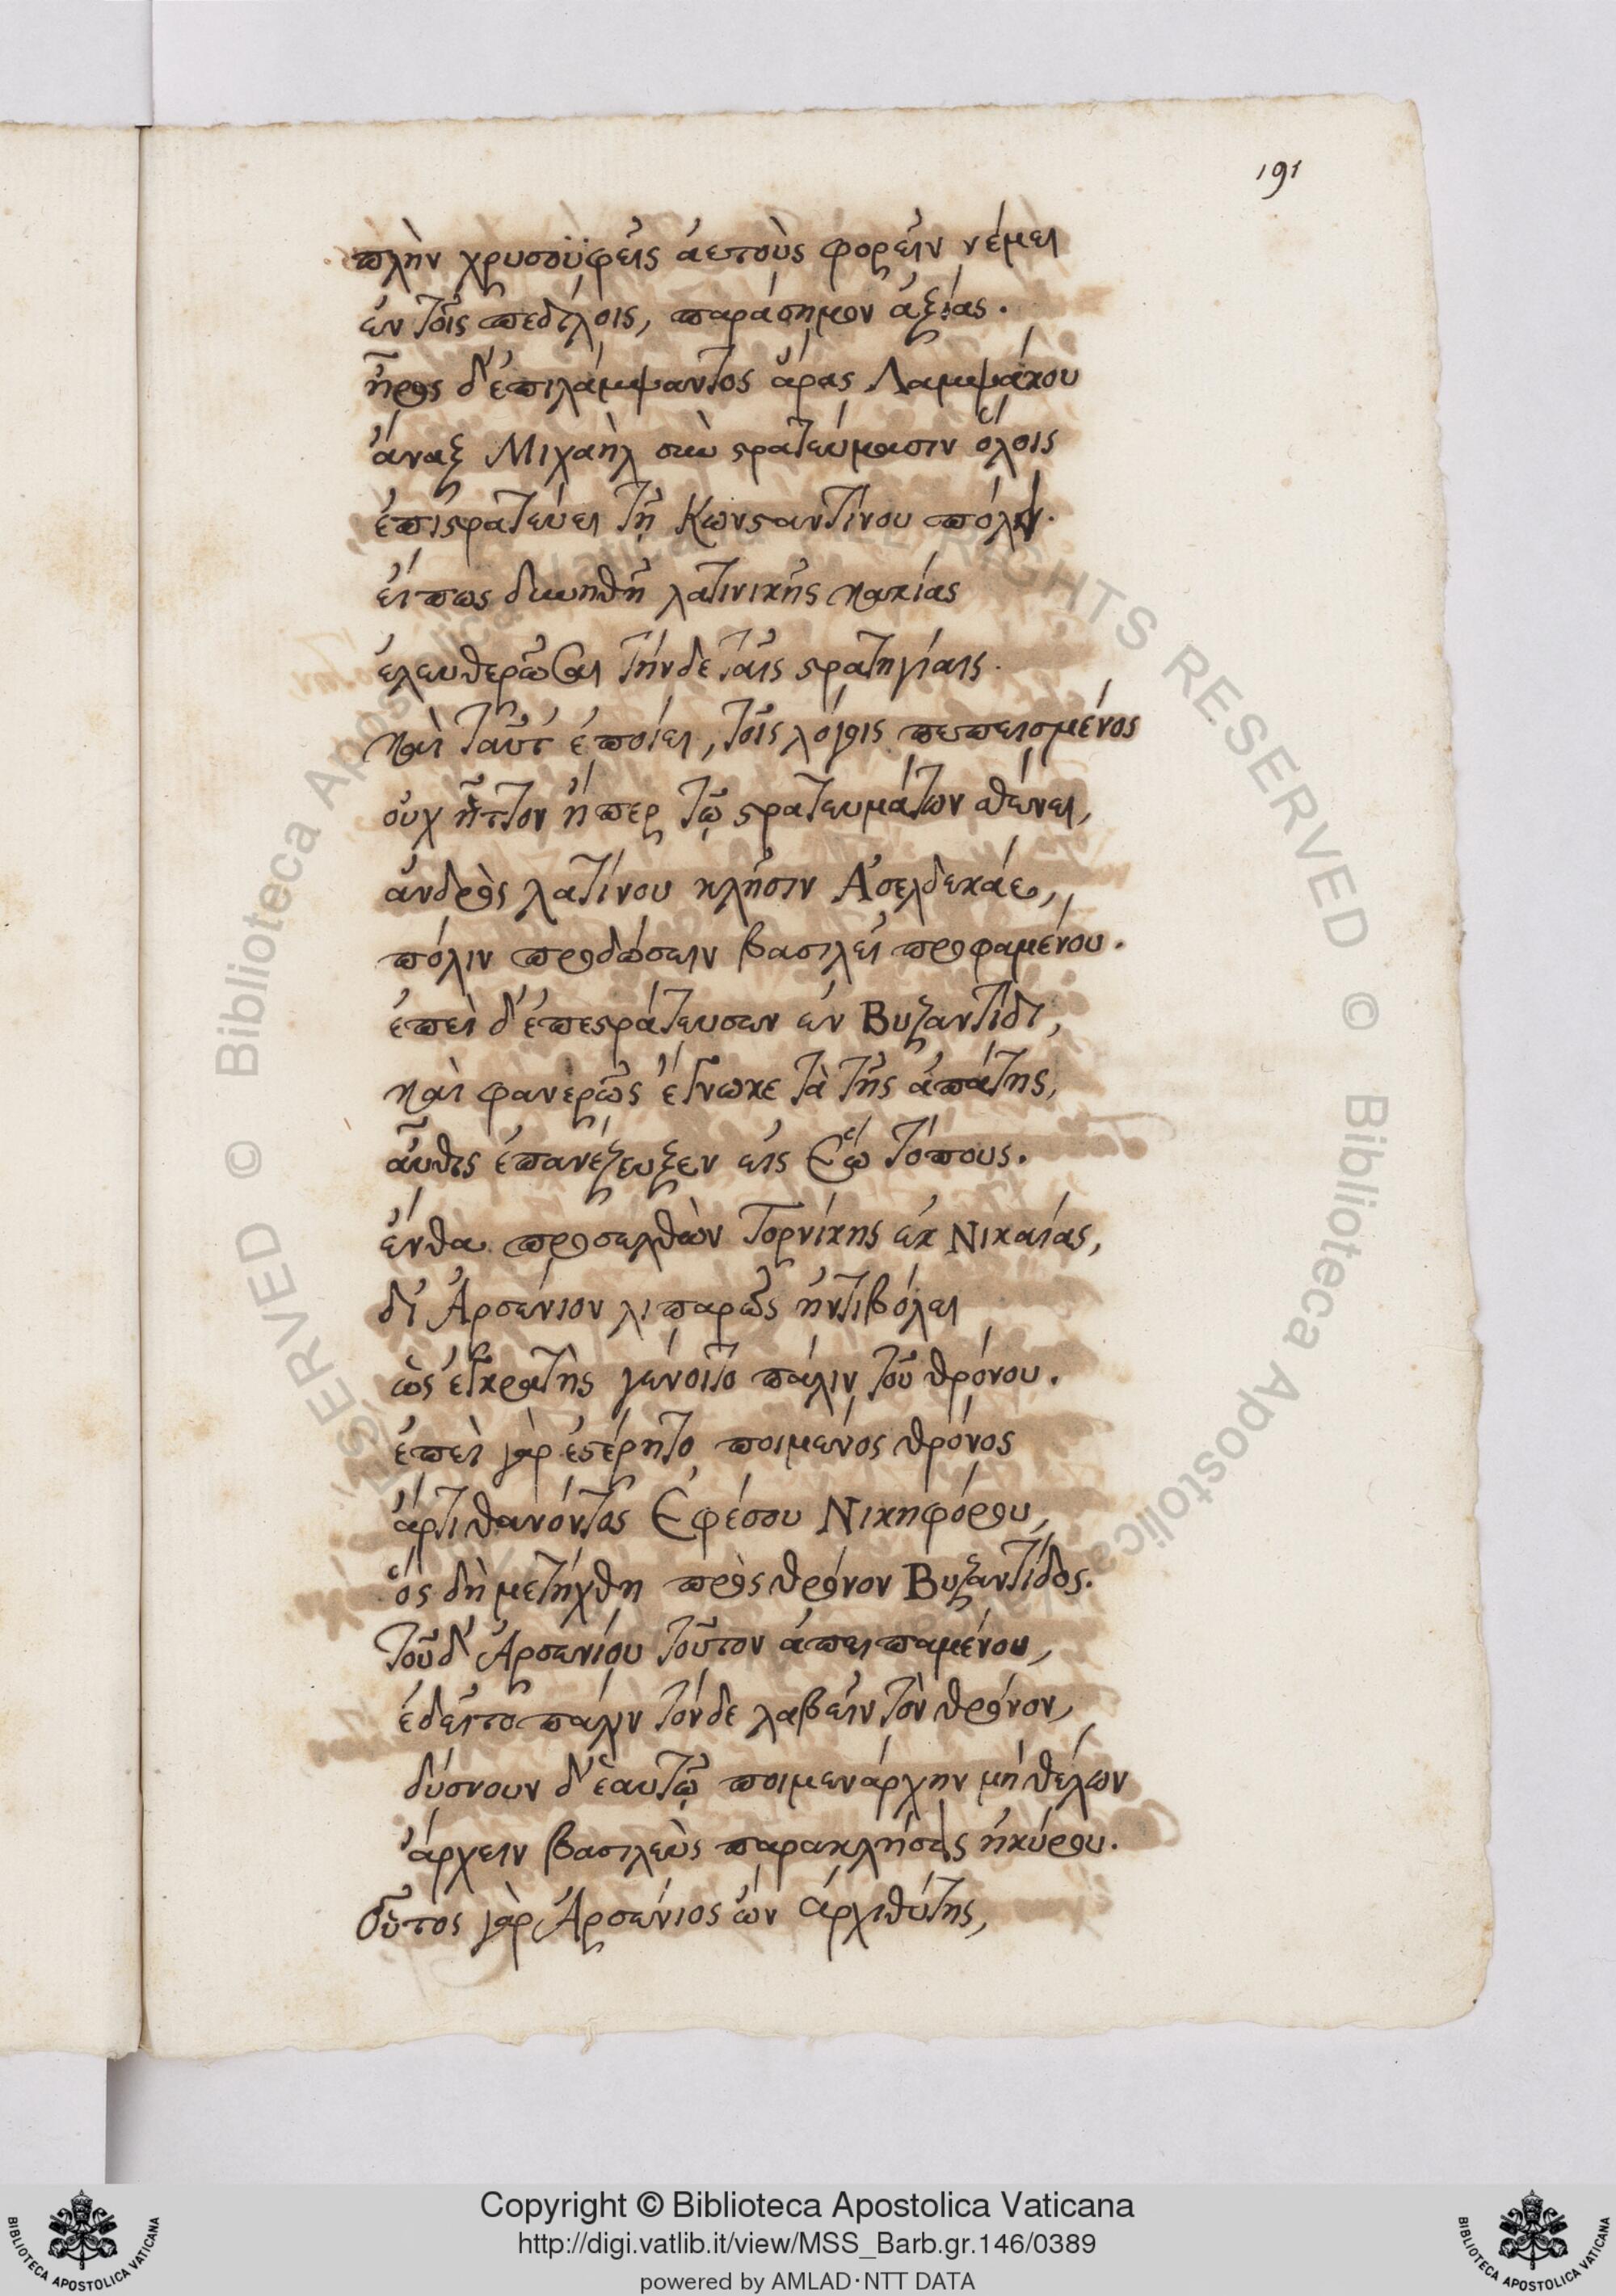 191
πλὴν χρυσοϋφεῖς ἀετοὺς φορεῖν νέμει
ἐν τοῖς πεδίλοις, παράσημον ἀξίας.
ἦρος δ' ἐπιλάμψαντος ἄρας Λαμψάκου
ἄναξ Μιχαὴλ σὺν στρατεύμασιν ὅλοις
ἐπιστρατεύει τῇ Κωνσταντίνου πόλει.
εἴπως δυνηθῇ λατινικῆς κακίας
ἐλευθερῶσαι τήνδε ταῖς στρατηγίαις.
καὶ ταῦτ' ἐποίει, τοῖς λόγοις πεπεισμένος
οὐχ ἧττον ἤπερ τῷ στρατευμάτων σθένει,
ἀνδρὸς λατίνου κλῆσιν Ἀσελδεκάε,
πόλιν προδώσειν βασιλεῖ προφαμένου.
ἐπεὶ δ' ἐπεστράτευσεν ἐν Βυζαντίδι,
καὶ φανερῶς ἔγνωκε τὰ τῆς ἀπάτης,
αὖθις ἐπανέζευξεν εἰς Ἑῴω τόπους.
ἔνθα προσελθὼν Τορνίκης ἐκ Νικαίας,
δι' Ἀρσένιον λιπαρῶς ἠντιβόλει
ὡς ἐγκρατὴς γένοιτο πάλιν τοῦ θρόνου.
ἐπεὶ γὰρ ἐστέρητο ποιμένος θρόνος
ἄρτι θανόντος Ἐφέσου Νικηφόρου,
ὃς δὴ μετήχθη πρὸς θρόνον Βυζαντίδος.
τοῦ δ' Ἀρσενίου τοῦτον ἀπειπαμένου,
ἐδεῖτο πάλιν τόνδε λαβεῖν τὸν θρόνον,
δύσνουν δ' ἑαυτῷ ποιμενάρχην μὴ θέλων
ἄρχειν βασιλεὺς παρακλήσεις ἠκύρου.
οὗτος γὰρ Ἀρσένιος ὢν ἀρχιθύτης,
Copyright © Biblioteca Apostolica Vaticana
http://digi.vatlib.it/view/MSS_Barb.gr.146/0389
powered by AMLAD·NTT DATA
BIBLIOTECA APOSTOLICA VATICANA
BIBLIOTECA APOSTOLICA VATICANA